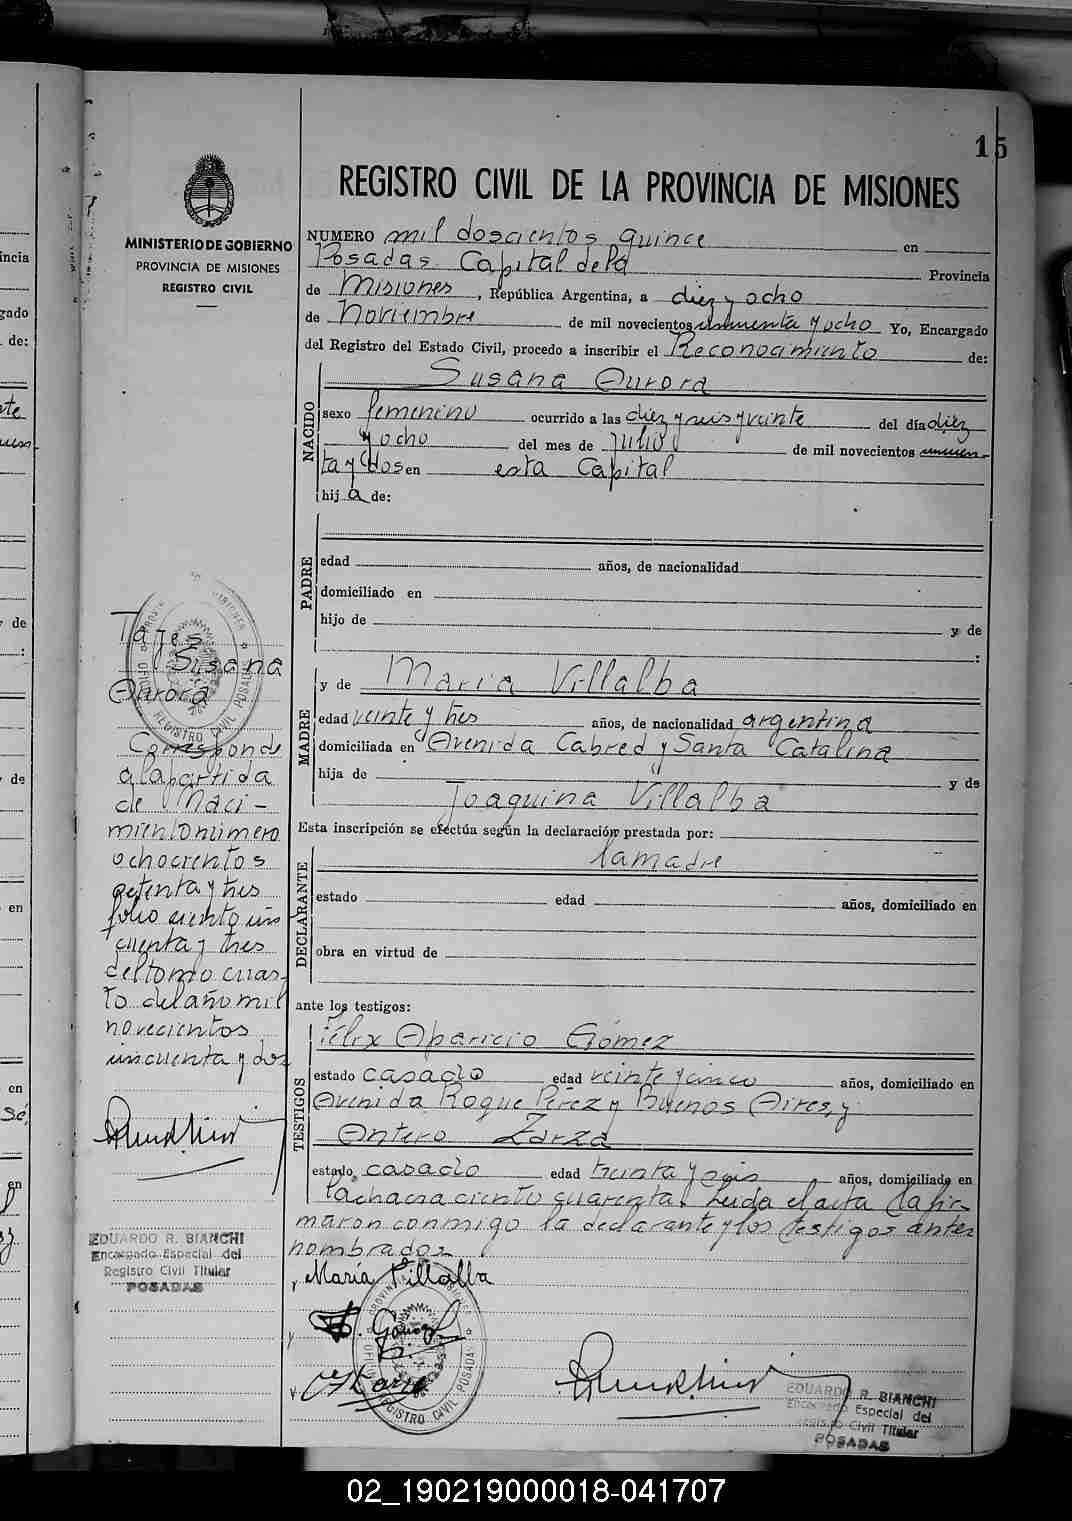 15
REGISTRO CIVIL DE LA PROVINCIA DE MISIONES
MINISTERIO DE GOBIERNO
PROVINCIA DE MISIONES
REGISTRO CIVIL
NUMERO mil doscientos quince en
Posadas Capital de la Provincia
de Misiones, República Argentina, a diez y ocho
de Noviembre de mil novecientos cincuenta y ocho Yo, Encargado
del Registro del Estado Civil, procedo a inscribir el Reconocimiento de:
NACIDO
Susana Aurora
sexo femenino ocurrido a las diez y seis y veinte del día diez
y ocho del mes de Julio de mil novecientos cincuen-
ta y dos en esta Capital
hija de:
PADRE
edad años, de nacionalidad
domiciliado en
hijo de y de
:
MADRE
y de Maria Villalba
edad veinte y tres años, de nacionalidad argentina
domiciliada en Avenida Cabred y Santa Catalina
hija de y de
Joaquina Villalba
Esta inscripción se efectúa según la declaración prestada por:
la madre
DECLARANTE
estado edad años, domiciliado en
obra en virtud de
ante los testigos:
TESTIGOS
Félix Aparicio Gómez
estado casado edad veinte y cinco años, domiciliado en
Avenida Roque Pérez y Buenos Aires, y
Antero Zarza
estado casado edad treinta y seis años, domiciliado en
la chacra ciento cuarenta. Leida el acta la fir-
maron conmigo la declarante y los testigos antes
nombrados
María Villalba
EDUARDO R. BIANCHI
Encargado Especial del
Registro Civil Titular
POSADAS
Susana
Aurora
Corresponde
a la partida
de Naci-
miento número
ochocientos
setenta y tres
folio ciento cin
cuenta y tres
del tomo cuar-
to del año mil
novecientos
cincuenta y dos
EDUARDO R. BIANCHI
Encargado Especial del
Registro Civil Titular
POSADAS
02_190219000018-041707